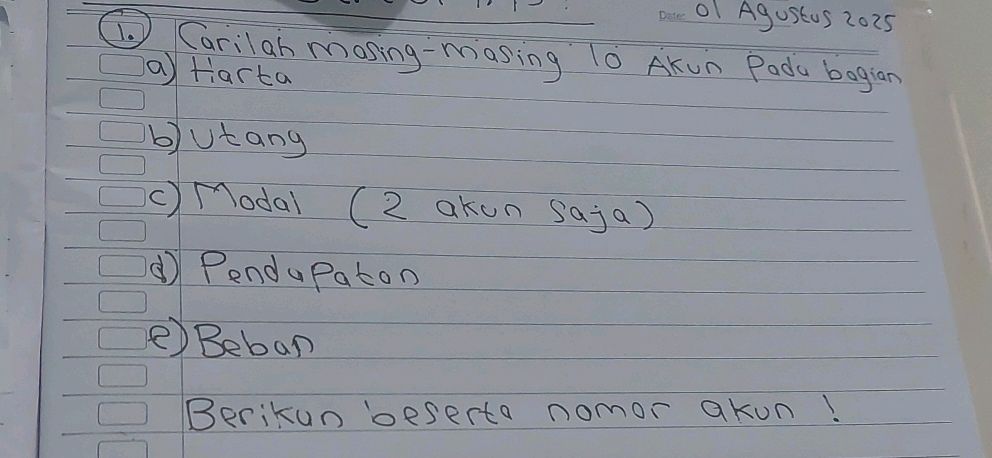 Date: 01 Agustus 2025
1. Carilah masing-masing 10 Akun Pada bagian
a) Harta
b) Utang
c) Modal (2 akun saja)
d) Pendapatan
e) Beban
Berikan beserta nomor akun !